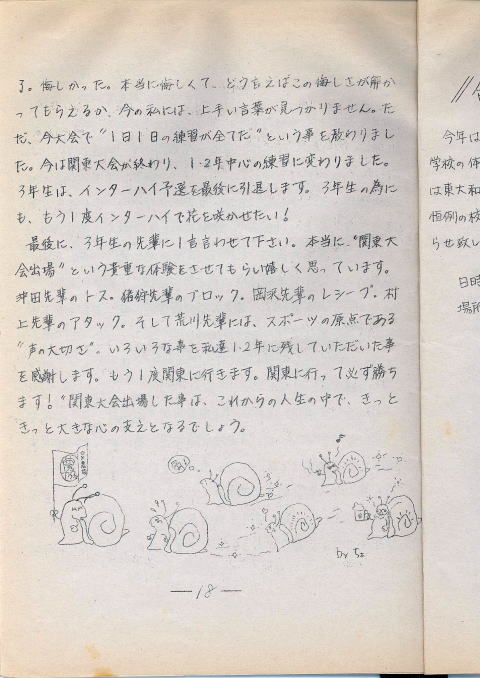 了。悔しかった。本当に悔しくて、どう言えばこの悔しさが解か
ってもらえるか、今の私には、上手い言葉が見つかりません。た
だ、今大会で“1日1日の練習が全てだ”という事を教わりまし
た。今は関東大会が終わり、1・2年中心の練習に変わりました。
3年生は、インターハイ予選を最後に引退します。3年生の為に
も、もう1度インターハイで花を咲かせたい！
最後に、3年生の先輩に1言言わせて下さい。本当に、“関東大
会出場”という貴重な体験をさせてもらい嬉しく思っています。
沖田先輩のトス。猪狩先輩のブロック。岡沢先輩のレシーブ。村
上先輩のアタック。そして荒川先輩には、スポーツの原点である
“声の大切さ”。いろいろな事を私達1・2年に残していただいた事
を感謝します。もう1度関東に行きます。関東に行って必ず勝ち
ます！“関東大会出場した事は、これからの人生の中で、きっと
きっと大きな心の支えとなるでしょう。
by ちょ
—18—
今年は
学校の体
は東大和
恒例の校
らせ致し
日時
場所